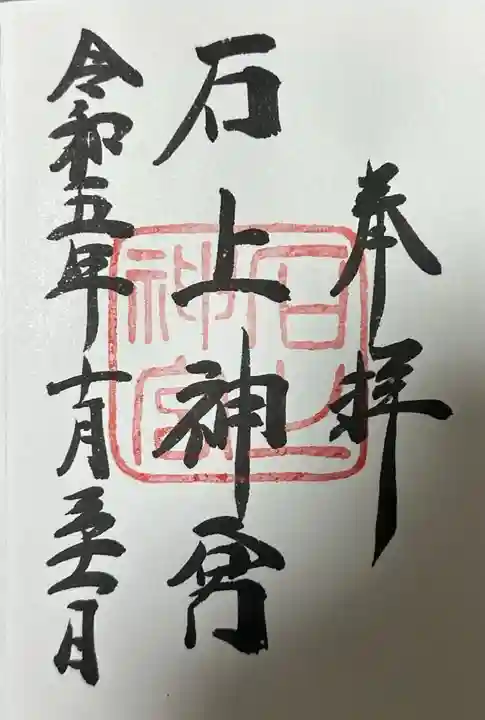 奉拝
石上神宮
令和五年十月三十一日
石上
神宮